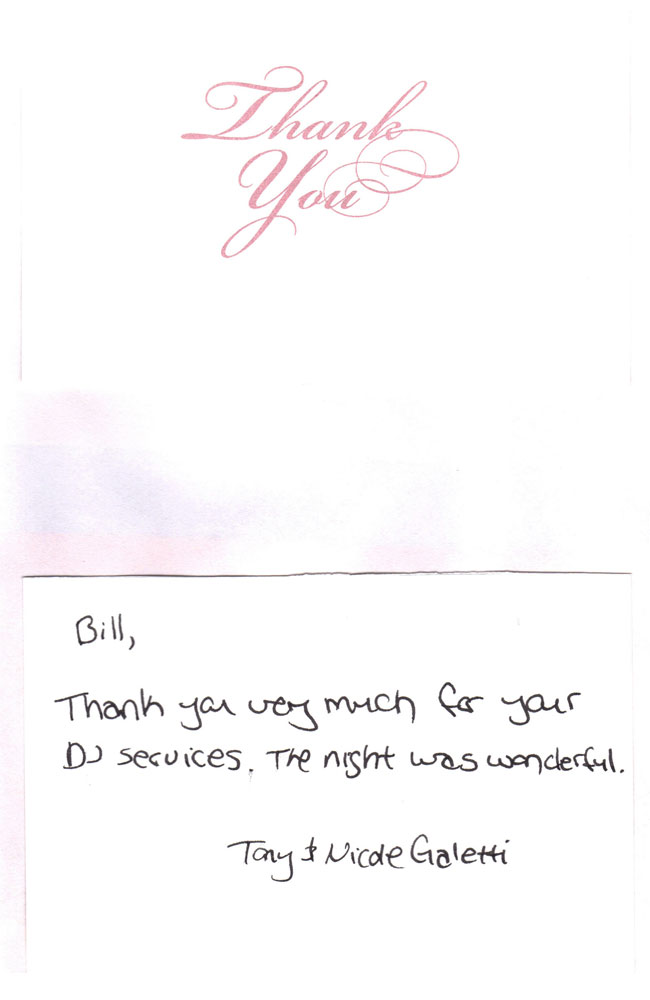 Thank
You
Bill,
Thank you very much for your
DJ services. The night was wonderful.
Tony & Nicole Galetti